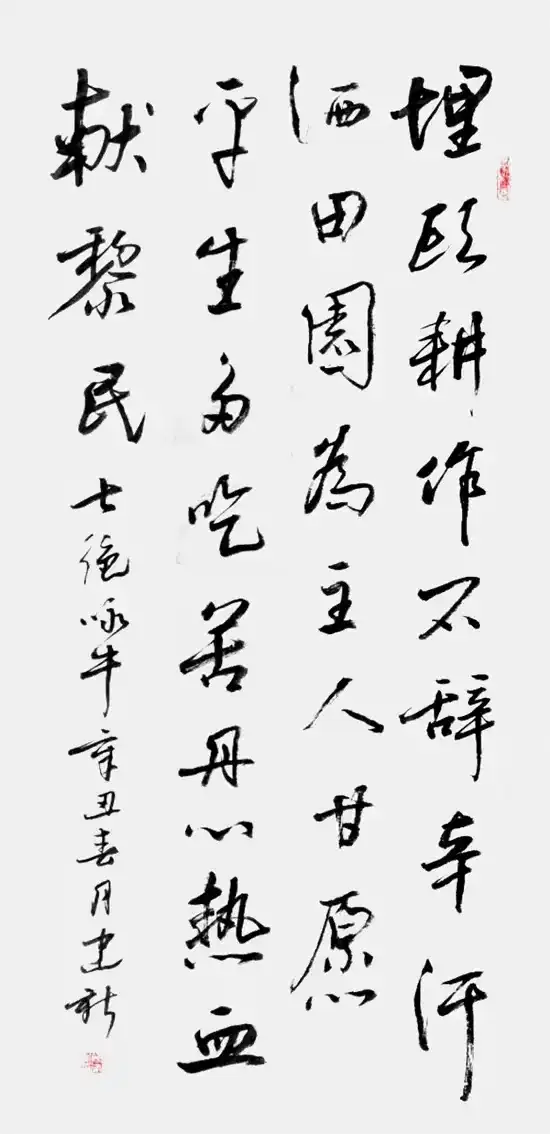 埋頭耕作不辞辛汗
洒田園為主人甘愿
平生多吃苦丹心熱血
献黎民 七絕咏牛 辛丑春月建新